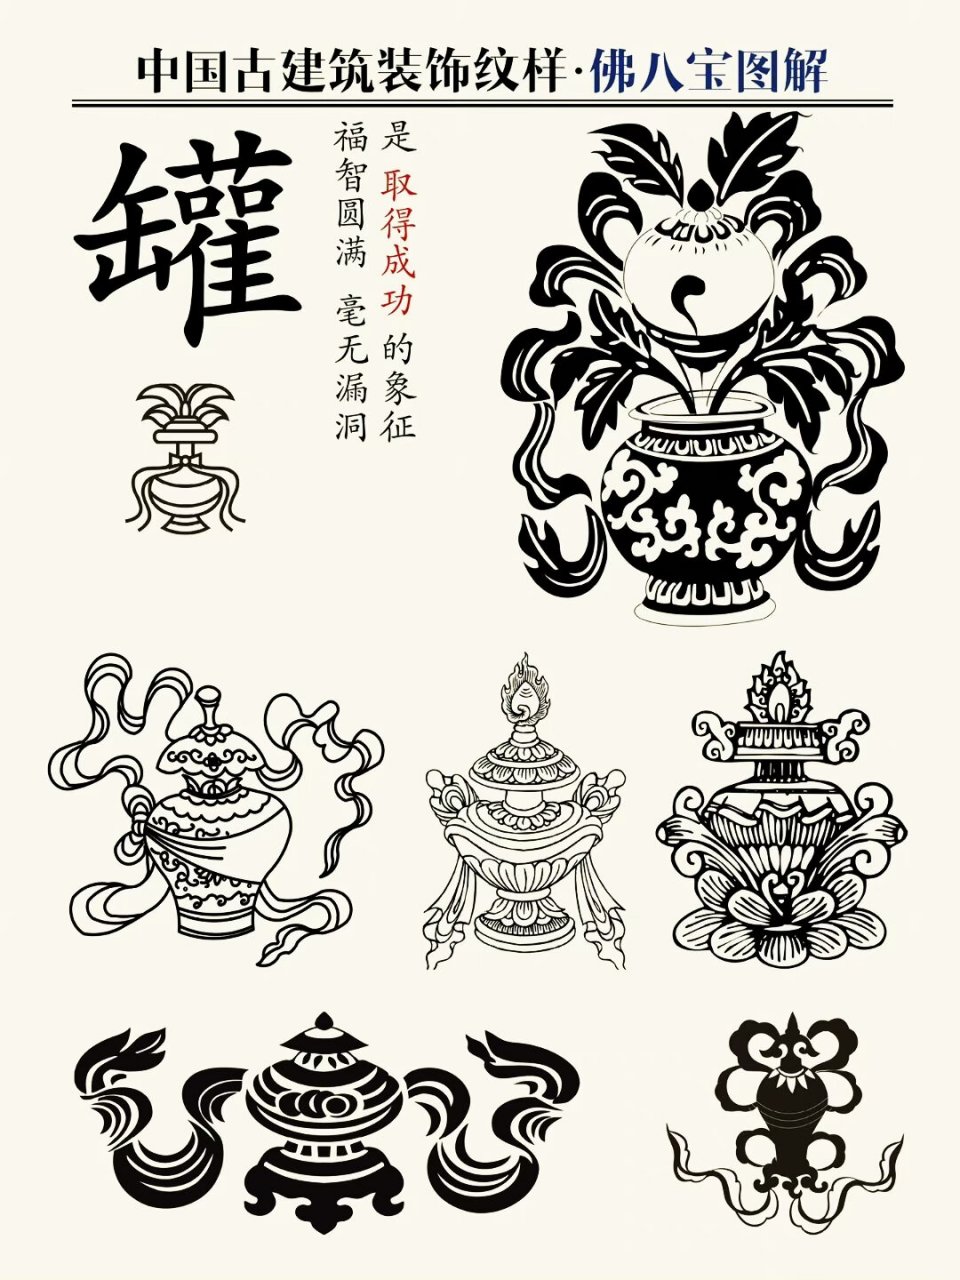 中国古建筑装饰纹样·佛八宝图解
罐
是 取得成功 的象征
福智圆满 毫无漏洞